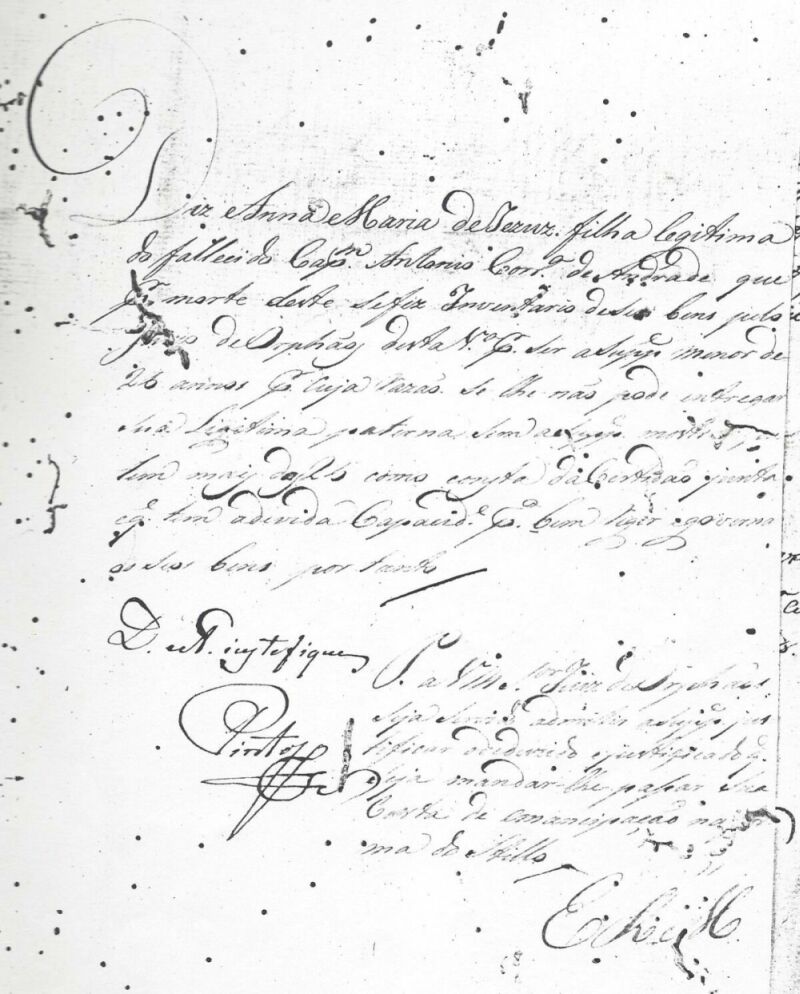 Diz Anna Maria de Jezuz filha legitima
do fallecido Capm. Antonio Corra. de Andrade que
pr. morte deste se fez Inventario de seos bens pelo
Juizo de Orphãos desta Va. pr. ser a Supe. menor de
25 annos pr. cuja razão se lhe não pode entregar
sua Legitima paterna, sem a Supe. mostrar que
tem mais de 25 como consta da Certidão junta
eq. tem a devida Capacide. pa. bem reger e governar
os seos bens por tanto
D. e A. justefique
Pinto
P. a Vm. Sor. Juiz de Orphãos
seja servido admitir a Supe. jus
tificar o deduzido e justificado q.
seja mandar-lhe passar sua
Carta de emancipação na for
ma do Stillo
E R M